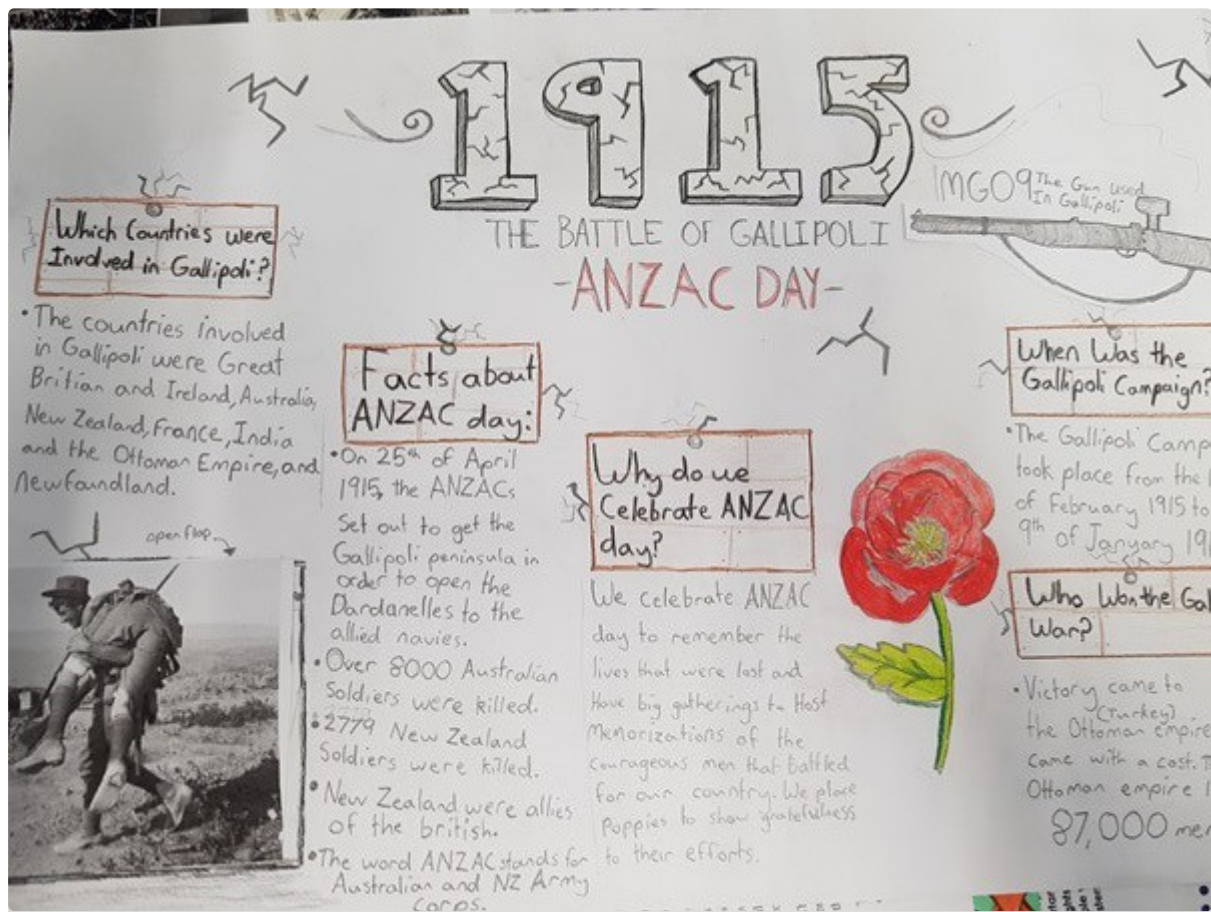 1915
THE BATTLE OF GALLIPOLI
-ANZAC DAY-
1MG09 The Gun used
In Gallipoli
Which Countries were
Involved in Gallipoli?
• The countries involved
in Gallipoli were Great
Britian and Ireland, Australia,
New Zealand, France, India
and the Ottoman Empire, and
newfoundland.
open flap
Facts about
ANZAC day:
• On 25th of April
1915, the ANZACs
Set out to get the
Gallipoli peninsula in
order to open the
Dardanelles to the
allied navies.
• Over 8000 Australian
Soldiers were killed.
• 2779 New Zealand
Soldiers were killed.
• New Zealand were allies
of the british.
• The word ANZAC stands for
Australian and NZ Army
Corps.
Why do we
Celebrate ANZAC
day?
We celebrate ANZAC
day to remember the
lives that were lost and
Have big gatherings to Host
Memorizations of the
courageous men that battled
for our country. We place
Poppies to show gratefulness
to their efforts.
When Was the
Gallipoli Campaign?
• The Gallipoli Camp
took place from the
of February 1915 to
9th of January 19
Who Won the Gal
War?
• Victory came to
(Turkey)
the Ottoman empire
came with a cost. T
Ottoman empire l
87,000 men